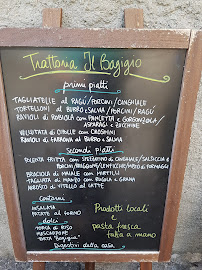 Trattoria Il Bagigio
primi piatti
TAGLIATELLE al RAGÙ/PORCINI/CINGHIALE
TORTELLONI al BURRO e SALVIA / PORCINI / RAGÙ
RAVIOLI di ROBIOLA con PANCETTA e GORGONZOLA/
ASPARAGI e ZUCCHINE
VELLUTATA di CIPOLLE con CROSTINI
RAVIOLI di FARAONA al BURRO e SALVIA
Secondi piatti
POLENTA FRITTA con SPEZZATINO di CINGHIALE/SALSICCIA e
FUNGHI/
BRACIOLA di MAIALE con MIRTILLI
TAGLIATA di MANZO con RUCOLA e GRANA
ARROSTO di VITELLO al LATTE
Contorni
INSALATA
PATATE al FORNO
dolci
TORTA di RISO
MASCARPONE
TORTA "Bagigio"
Digestivi della casa
Prodotti locali
e
pasta fresca
fatta a mano